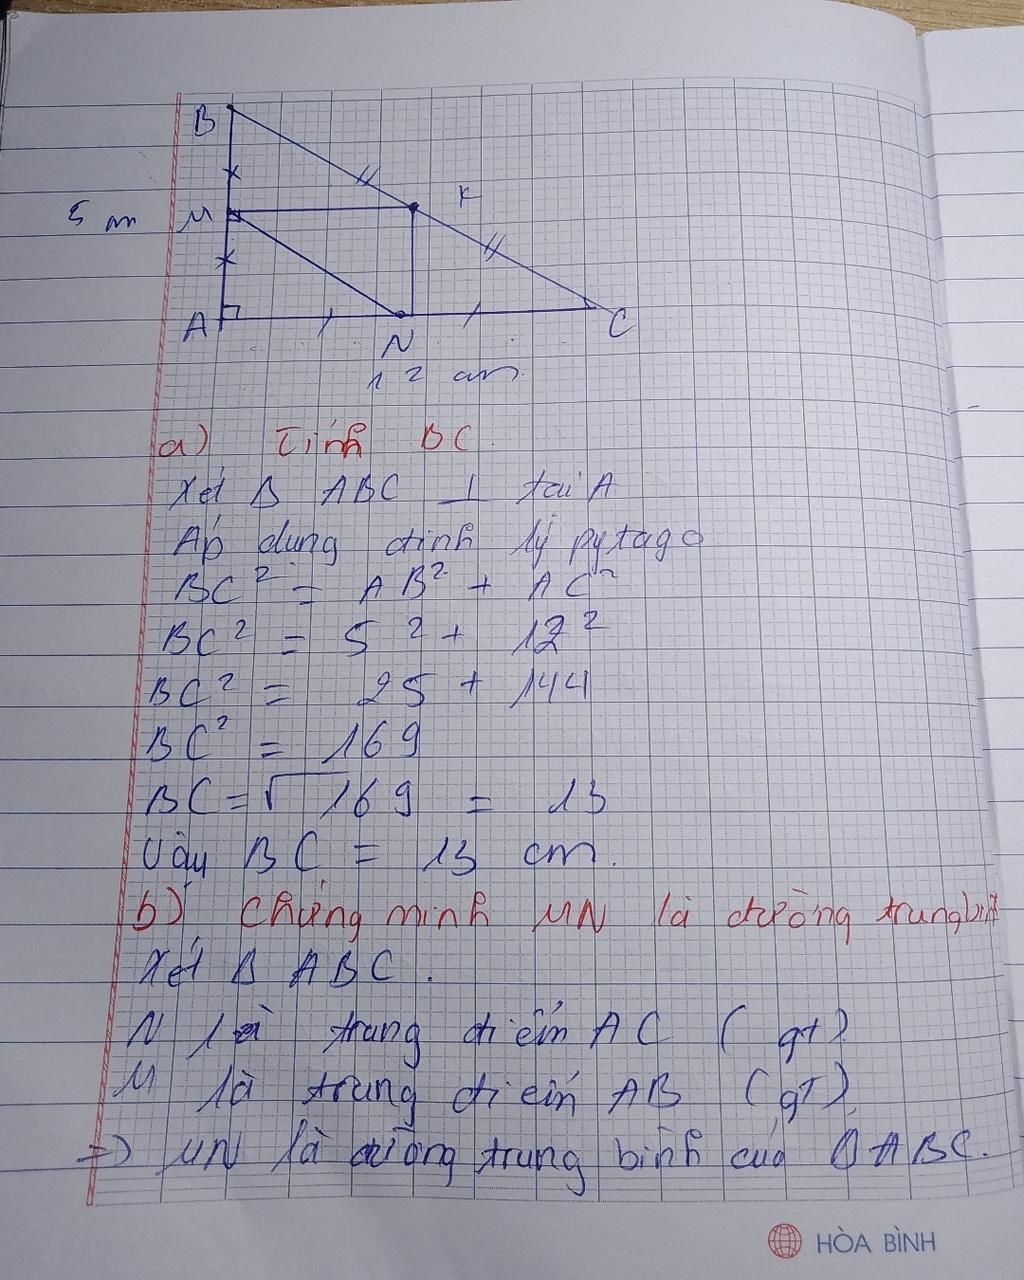 B
K
5 cm M
A
N
C
12 cm
a) Tính BC.
Xét Δ ABC ⊥ tại A
Áp dụng định lý pytago
BC² = AB² + AC²
BC² = 5² + 12²
BC² = 25 + 144
BC² = 169
BC = √169 = 13
Vậy BC = 13 cm.
b) Chứng minh MN là đường trung bình
Xét Δ ABC.
N là trung điểm AC (gt)
M là trung điểm AB (gt)
=> MN là đường trung bình của Δ ABC.
HÒA BÌNH